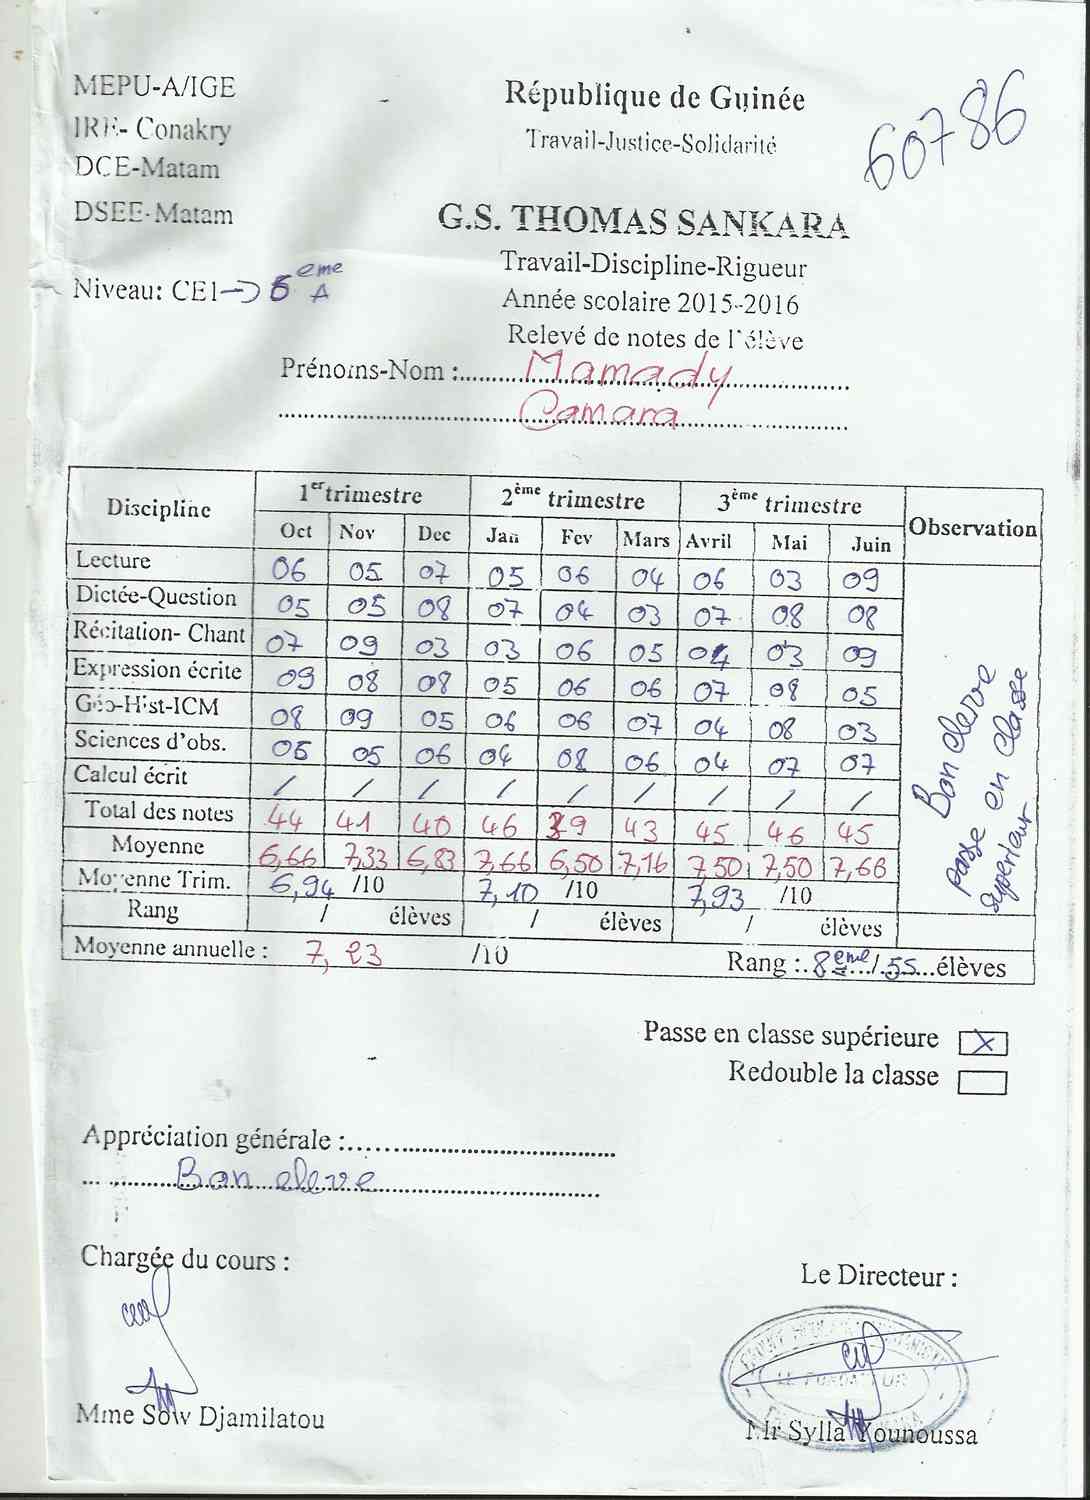 MEPU-A/IGE
République de Guinée
60786
IRE- Conakry
Travail-Justice-Solidarité
DCE-Matam
DSEE-Matam
G.S. THOMAS SANKARA
Travail-Discipline-Rigueur
Niveau: CE1 → 6 eme A
Année scolaire 2015-2016
Relevé de notes de l'élève
Prénoms-Nom :.......Mamady
Camara
Discipline 1er trimestre 2ème trimestre 3ème trimestre Observation
Oct Nov Dec Jan Fev Mars Avril Mai Juin
Lecture 06 05 07 05 06 04 06 03 09
Dictée-Question 05 05 08 07 04 03 07 08 08
Récitation- Chant 07 09 03 03 06 05 04 03 09
Expression écrite 09 08 08 05 06 06 07 08 05
Géo-Hist-ICM 08 09 05 06 06 07 04 08 03
Sciences d'obs. 05 05 06 04 08 06 04 07 07
Calcul écrit / / / / / / / / /
Total des notes 44 41 40 46 39 43 45 46 45
Moyenne 6,66 7,33 6,83 7,66 6,50 7,16 7,50 7,50 7,66
Moyenne Trim. 6,94 /10 7,10 /10 7,93 /10
Rang / élèves / élèves / élèves
Bon elerve
passe en classe
superieur
Moyenne annuelle : 7,23 /10 Rang :.8eme../.55...élèves
Passe en classe supérieure X
Redouble la classe
Appréciation générale :
Bon eleve
Chargée du cours :
Le Directeur :
LE FONDATEUR
Mme Sow Djamilatou
Mr Sylla Younoussa